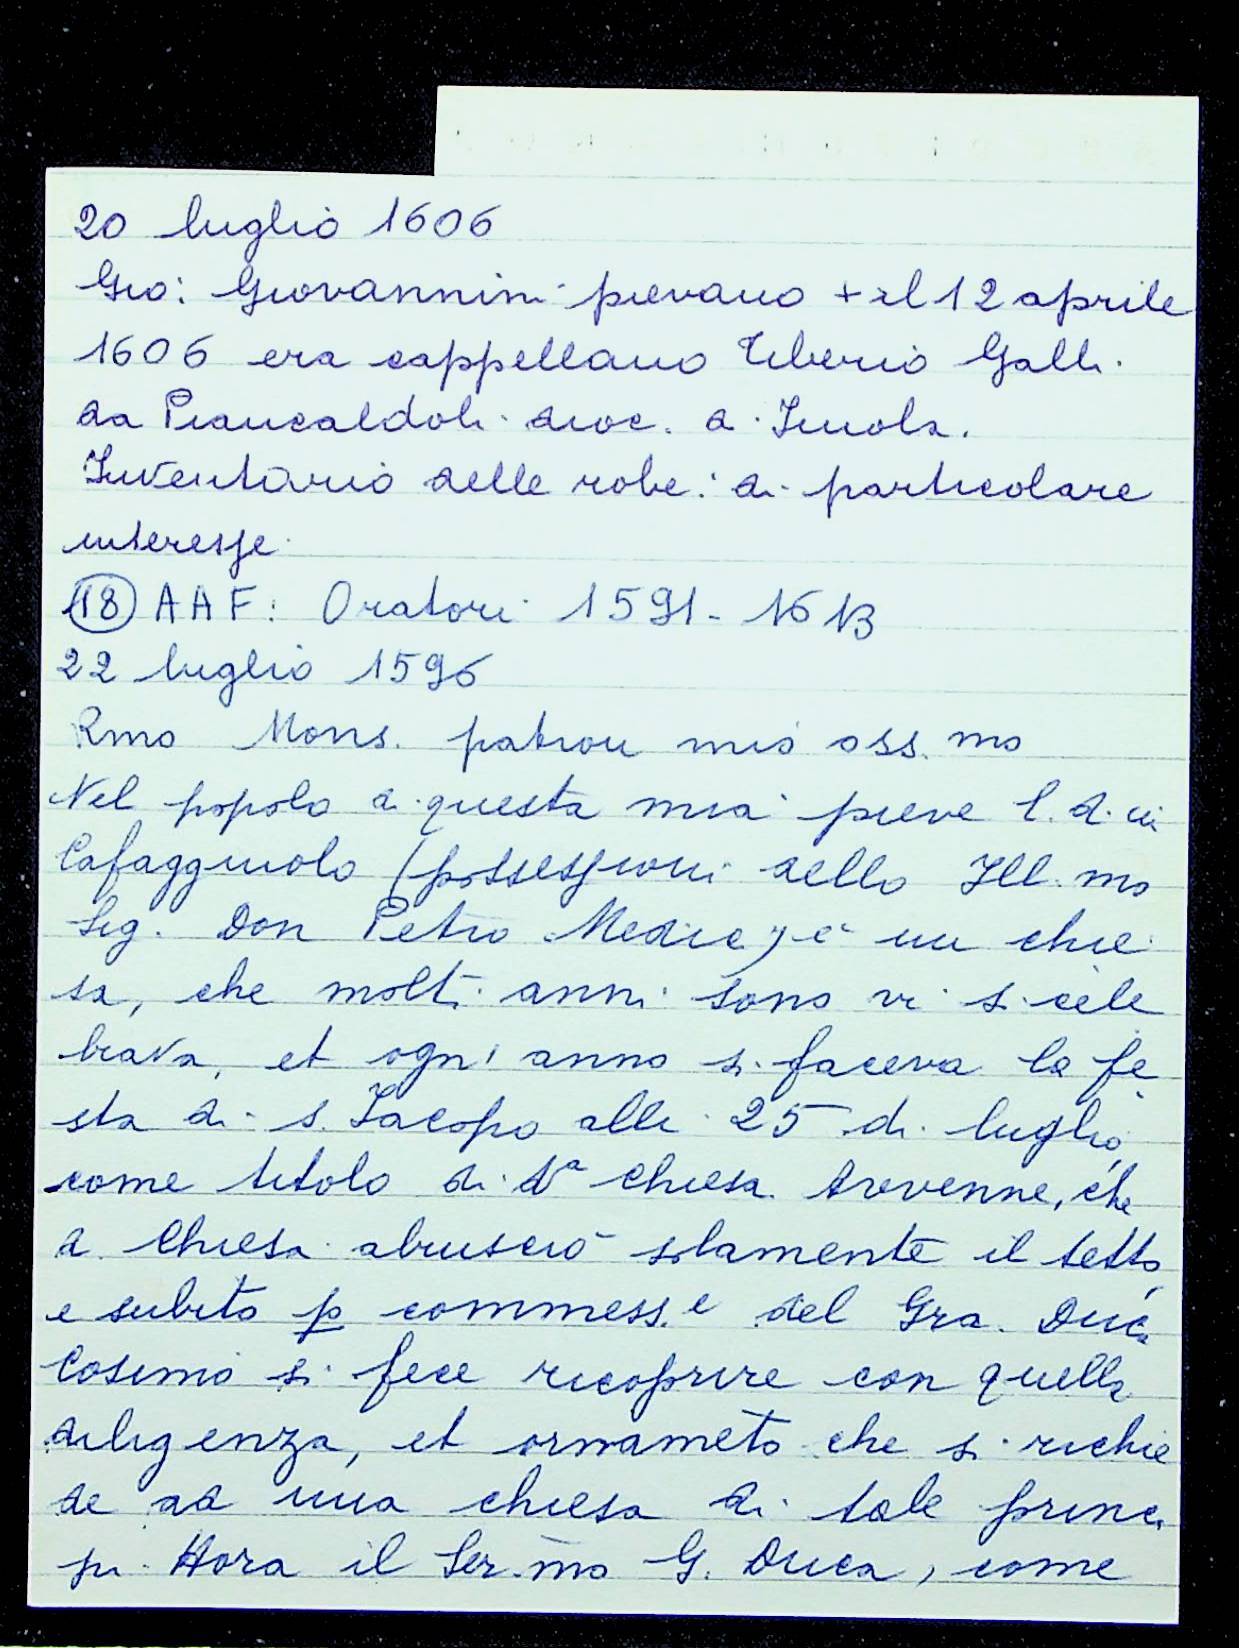 20 luglio 1606
Gio: Giovannini pievano + il 12 aprile
1606 era cappellano Tiberio Galli
da Piancaldoli dioc. di Imola.
Inventario delle robe: di particolare
interesse
(18) AAF: Oratori 1591-1613
22 luglio 1596
Rmo Mons. patron mio oss.mo
Nel popolo di questa mia pieve l.d. in
Cafaggiuolo (possessioni dello Ill.mo
Sig. Don Petro Medici) è un chie
sa, che molti anni sono vi si cele
brava, et ogni anno si faceva la fe
sta di s. Jacopo alli 25 di luglio,
come titolo di d.ª chiesa. Avvenne, che
d. Chiesa abrusciò solamente il tetto,
e subito p commess.e del Gra. Duca
Cosimo si fece ricoprire con quella
diligenza, et ornameto che si richie
de ad una chiesa di tale princi
pi. Hora il Ser.mo G. Duca, come